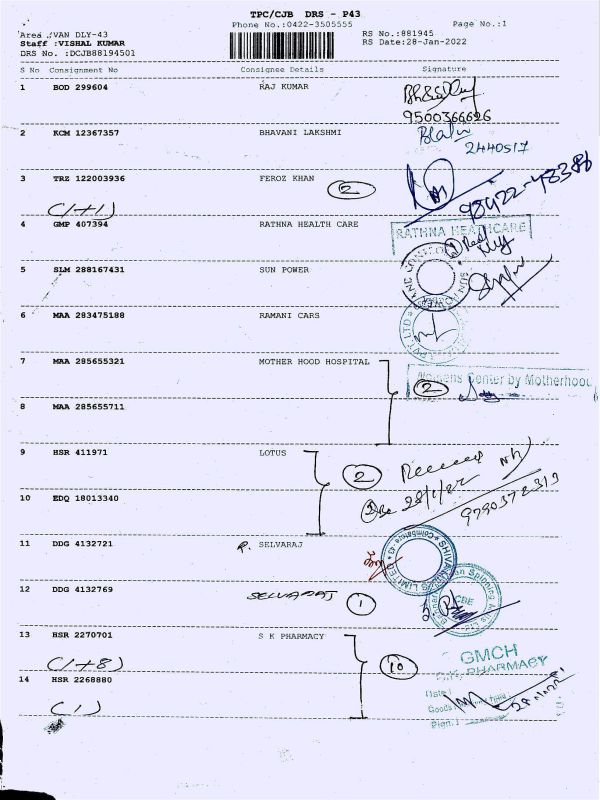 TPC/CJB DRS - P43
Phone No.:0422-3505555
Page No.:1
Area :VAN DLY-43
RS No.:881945
Staff :VISHAL KUMAR
RS Date:28-Jan-2022
DRS No. :DCJB88194501
S No Consignment No Consignee Details Signature
1 BOD 299604 RAJ KUMAR
9500366626
2 KCM 12367357 BHAVANI LAKSHMI
2440517
3 TRZ 122003936 FEROZ KHAN 2
98422-48386
(1+1)
4 GMP 407394 RATHNA HEALTH CARE
RATHNA HEATHCARE
5 SLM 288167431 SUN POWER
SUN POWER
6 MAA 283475188 RAMANI CARS
PVT LTD
7 MAA 285655321 MOTHER HOOD HOSPITAL 2
Womens Center by Motherhood
8 MAA 285655711
9 HSR 411971 LOTUS 2
Received
28/1/22
9790372313
10 EDQ 18013340
11 DDG 4132721 P. SELVARAJ
LIMITED Coimbatore
12 DDG 4132769 SELVARAJ 1
Spinning
CBE
13 HSR 2270701 S K PHARMACY 10
(1+8)
GMCH
S.K. PHARMACY
14 HSR 2268880
Date :
Goods
(1)
Sign. :